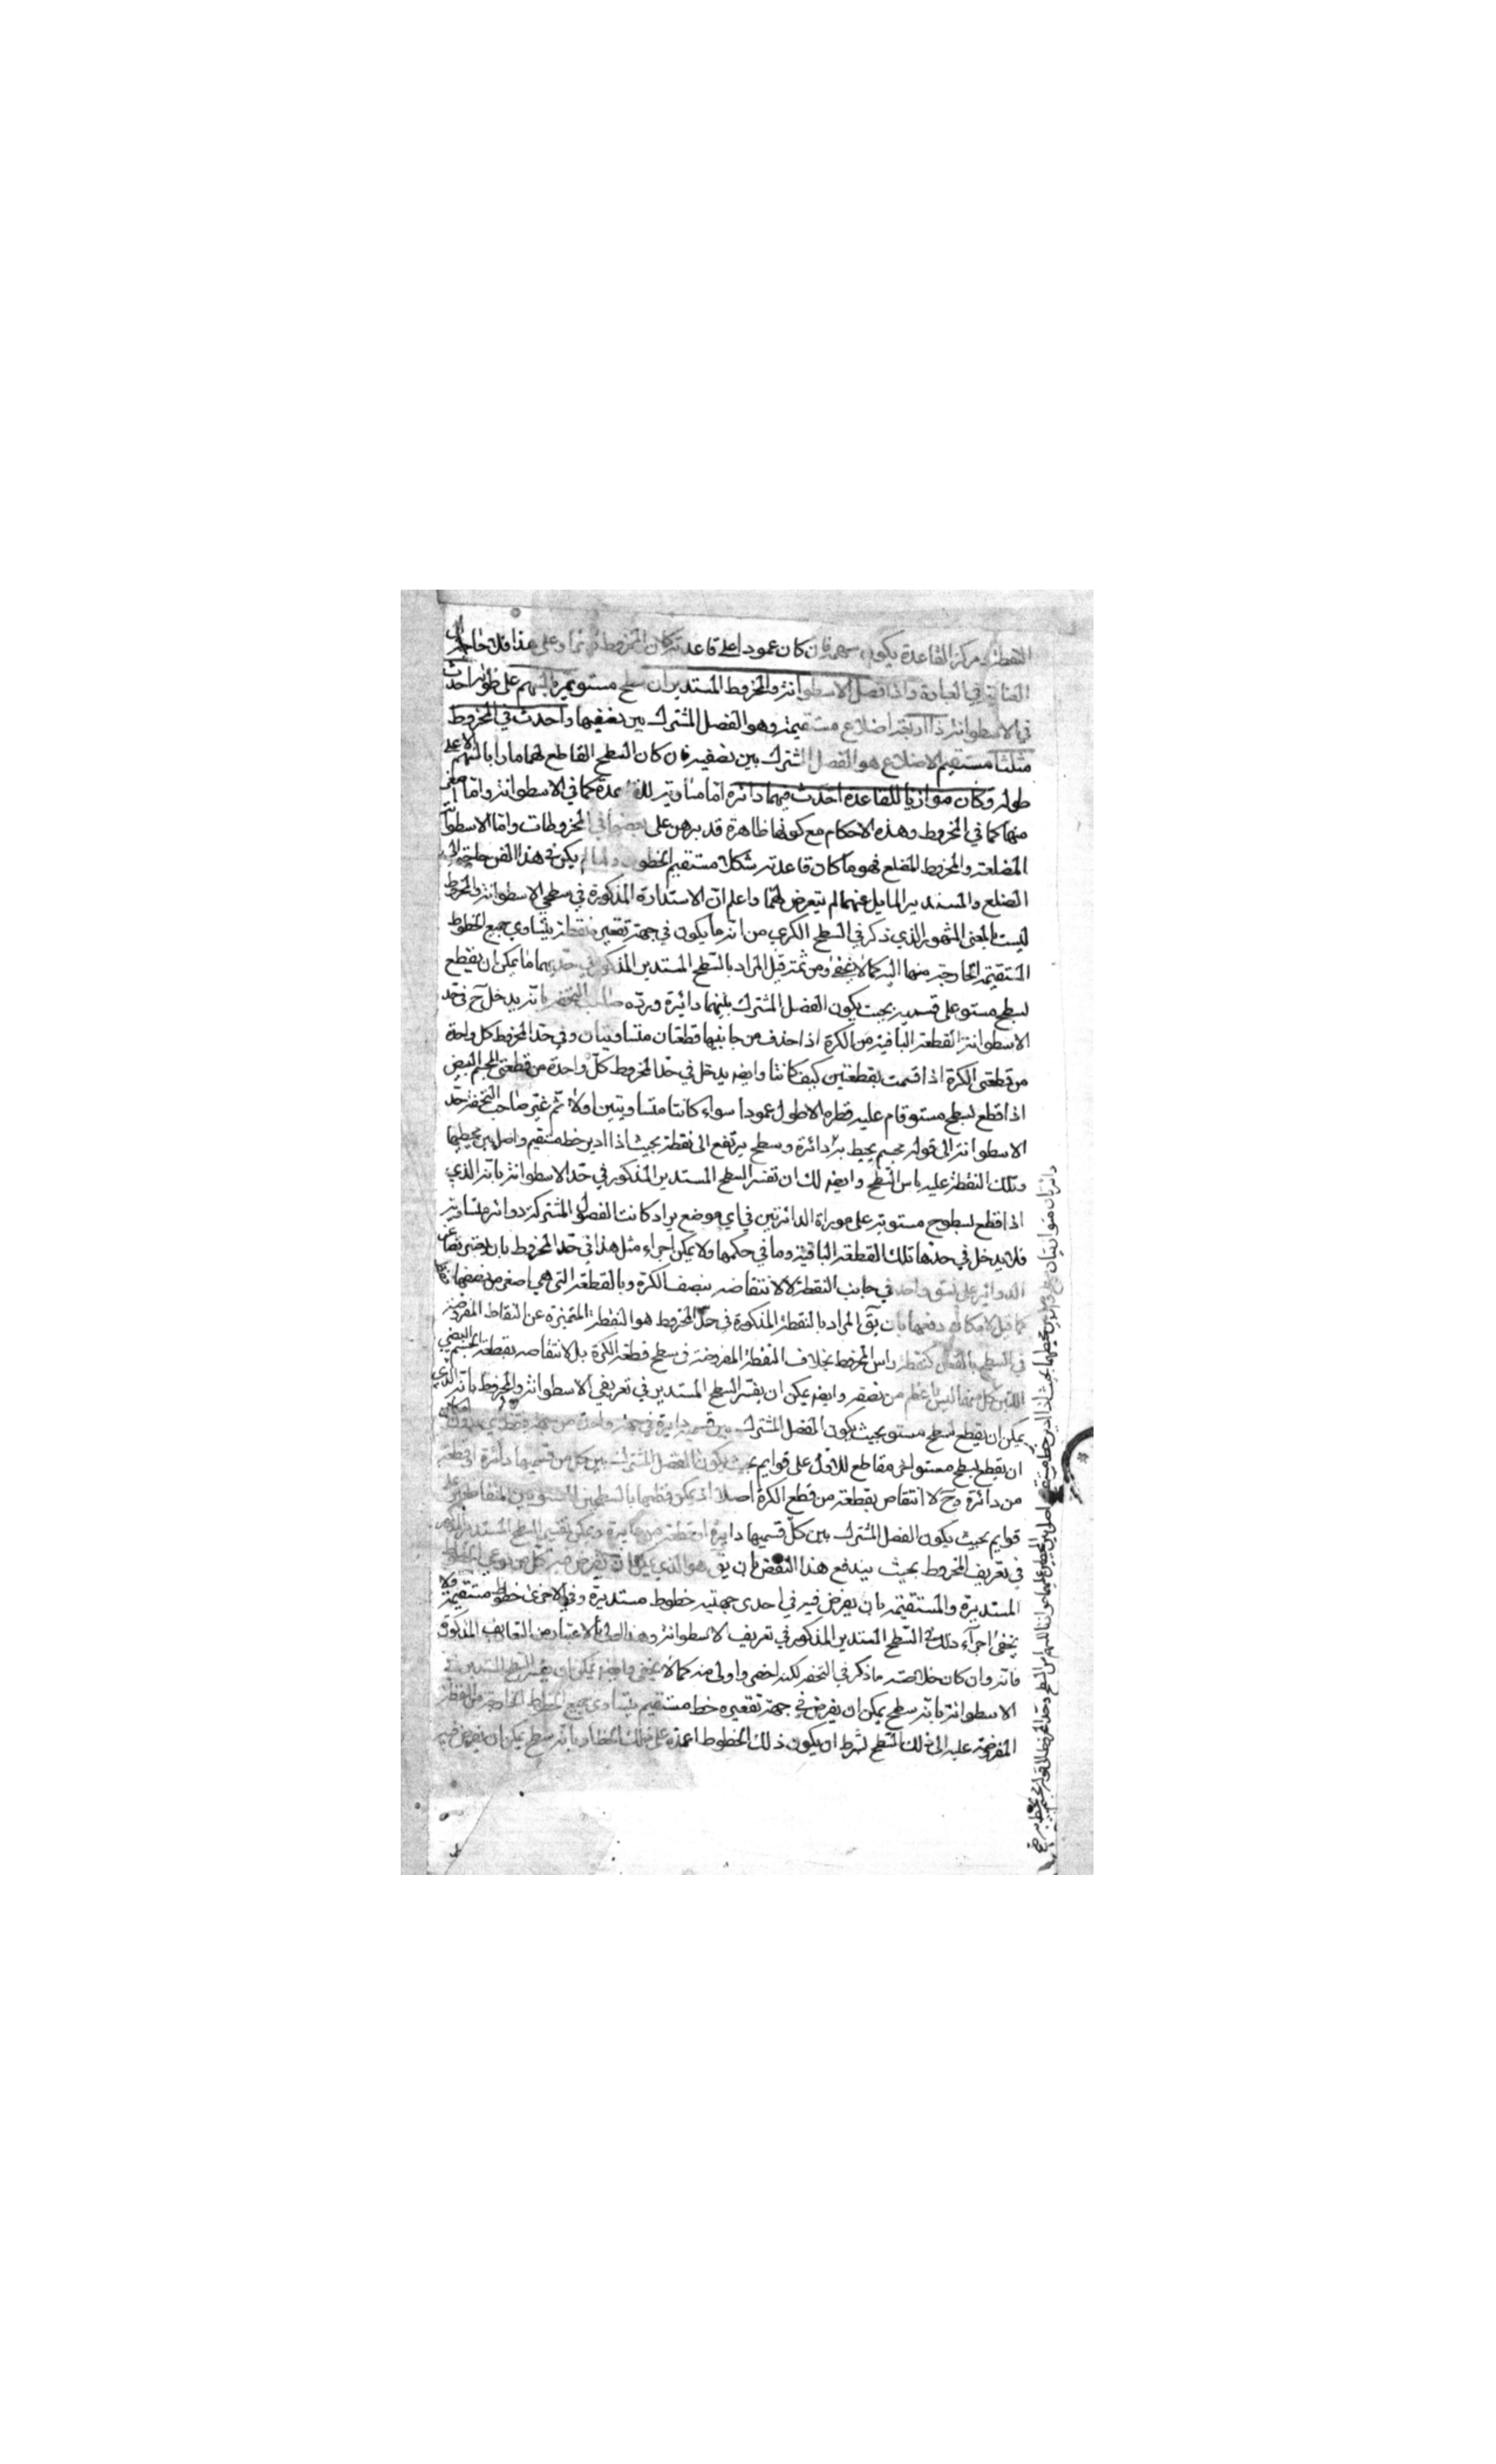 النقطة ومركز القاعدة يكون سهمه فان كان عمودا على قاعدته كان المخروط قائما وعلى هذا فلا حاجة الى
العناية في العبادة واذا فصل الاسطوانة والمخروط المستديران سطح مستو يمر بالسهم على طوله احدث
في الاسطوانة ذا اربعة اضلاع مستقيمة وهو الفصل المشترك بين نصفيها واحدث في المخروط
مثلثا مستقيم الاضلاع هو الفصل المشترك بين نصفيه فان كان السطح القاطع لهما مارا بالسهم لا على
طوله وكان موازيا للقاعدة احدث فيهما دائرة اما مساوية للقاعدة كما في الاسطوانة واما اصغر
منها كما في المخروط وهذه الاحكام مع كونها ظاهرة قد برهن على بعضها في المخروطات واما الاسطوانة
المضلعة والمخروط المضلع فهو ما كان قاعدته شكلا مستقيم الخطوط ولما لم يكن في هذا الفن حاجة الى
المضلع والمستدير المايل عنهما لم يتعرض لهما واعلم ان الاستدارة المذكورة في سطحي الاسطوانة والمخروط
ليست بالمعنى المشهور الذي ذكر في السطح الكري من انه ما يكون في جهة تقعيره نقطة يتساوي جميع الخطوط
المستقيمة الخارجة منها اليه كما لا يخفى ومن ثمة قيل المراد بالسطح المستدير المذكور في حديهما ما يمكن ان يقطع
بسطح مستو على قسمين بحيث يكون الفصل المشترك بينهما دائرة ورده صاحب التحفة بانه يدخل ح في حد
الاسطوانة القطعة الباقية من الكرة اذا حذف من جانبيها قطعتان متساويتان وفي حد المخروط كل واحدة
من قطعتي الكرة اذا قسمت بقطعتين كيف كانتا وايضا يدخل في حد المخروط كل واحدة من قطعتي المجسم البيضي
اذا قطع بسطح مستو قام عليه قطره الاطول عمودا سواء كانتا متساويتين اولا ثم غير صاحب التحفة حد
الاسطوانة الى قوله مجسم يحيط به دائرة وسطح يرتفع الى نقطة بحيث اذا ادير خط مستقيم واصل بين محيطها
وتلك النقطة عليه ماس السطح وايضا لك ان تفسر السطح المستدير المذكور في حد الاسطوانة بانه الذي
اذا قطع بسطوح مستوية على موازاة الدائرتين في اي موضع يراد كانت الفصول المشتركة دوائر متساوية
فلا يدخل في حدها تلك القطعة الباقية وما في حكمها ولا يمكن اجراء مثل هذا في حد المخروط بان
الدوائر على نسق واحد في جانب النقطة لا لانتقاضه بنصف الكرة وبالقطعة التي هي اصغر من نصفها
كما قيل لامكان دفعها بان يقال المراد بالنقطة المذكورة في حد المخروط هو النقطة المتميزة عن النقاط المفروضة
في السطح بالفعل كنقطة راس المخروط بخلاف النقطة المفروضة في سطح قطعة الكرة بل لانتقاضه بقطعة المجسم البيضي
اللتين كل منهما ليس باعظم من نصفه وايضا يمكن ان يفسر السطح المستدير في تعريفي الاسطوانة والمخروط بانه الذي
يمكن ان يقطع بسطح مستو بحيث يكون الفصل المشترك بين قسميه دايرة في جهة واحدة من جهة فقط اي بدون امكان
ان يقطع بسطح مستو اخر مقاطع للاول على قوايم بحيث يكون الفصل المشترك بين كل من قسميها دائرة او قطعة
من دائرة وح لا انتقاض بقطعة من قطع الكرة اصلا اذ يمكن قطعها بالسطحين المستويين المتقاطعين على
قوايم بحيث يكون الفصل المشترك بين كل قسميها دايرة او قطعة من دايرة ويمكن تفسير السطح المستدير المذكور
في تعريف المخروط بحيث يندفع هذا النقض بان يق هو الذي يمكن ان يفرض فيه كل من نوعي الخطوط
المستديرة والمستقيمة بان يفرض فيه في احدى جهتيه خطوط مستديرة وفي الاخرى خطوط مستقيمة ولا
يخفى اجراء ذلك في السطح المستدير المذكور في تعريف الاسطوانة وهذا اولى بالاعتبار من التعاريف المذكورة
فانه وان كان خلاصته ما ذكر في التحفة لكنه اخصر واولى منه كما لا يخفى وايضا يمكن ان يفسر السطح المستدير في
الاسطوانة بانه سطح يمكن ان يفرض في جهة تقعيره خط مستقيم يتساوى جميع الخطوط الخارجة من النقط
المفروضة عليه الى ذلك السطح بشرط ان يكون ذلك الخطوط اعمدة على ذلك الخط او بانه سطح يمكن ان يفرض فيه
دائرتان متوازيتان بحيث اذا ادير خط مستقيم واصل بين المحيطين عليهما